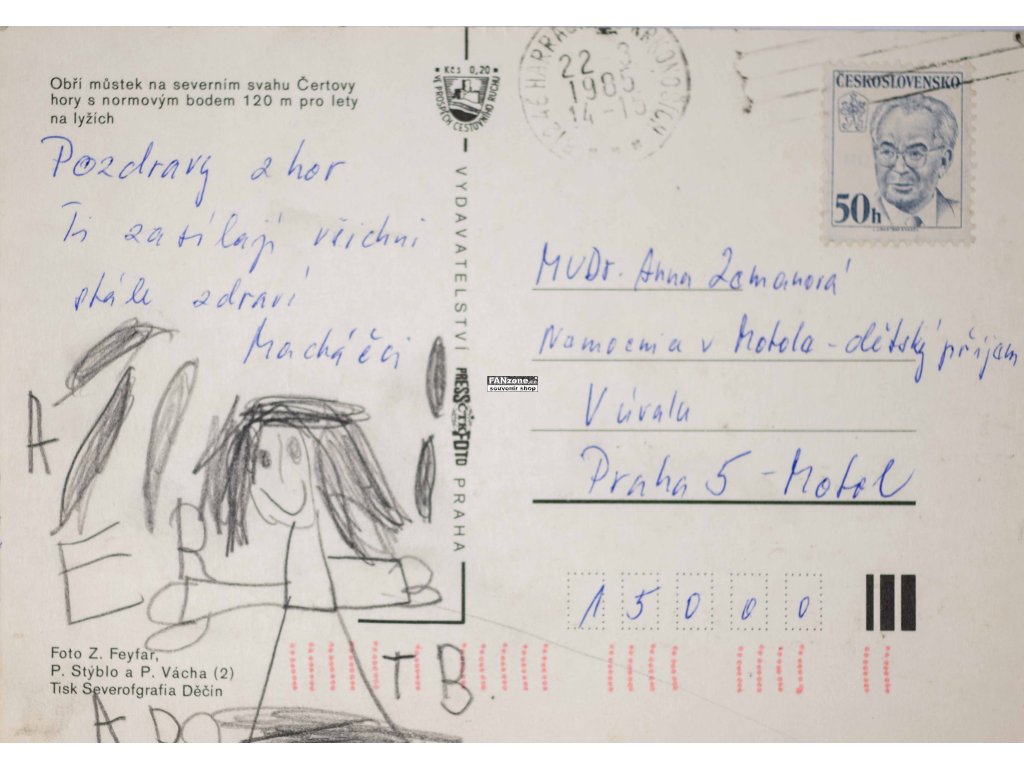 Obří můstek na severním svahu Čertovy
hory s normovým bodem 120 m pro lety
na lyžích
Pozdravy z hor
Ti zasílají všichni
stále zdraví
Macháčci
Foto Z. Feyfar,
P. Stýblo a P. Vácha (2)
Tisk Severofgrafia Děčín
A
E
R
T B
A
Kčs 0,20
VE PROSPĚCH CESTOVNÍHO RUCHU
VYDAVATELSTVÍ PRESSFOTO PRAHA
ČTK
FANzone.cz
souvenir shop
HARRACHOV
22 3
1985
14-15
ČESKOSLOVENSKO
50h
MUDr. Anna Zemanová
Nemocnia v Motole - dětský příjem
V úvalu
Praha 5 - Motol
15000